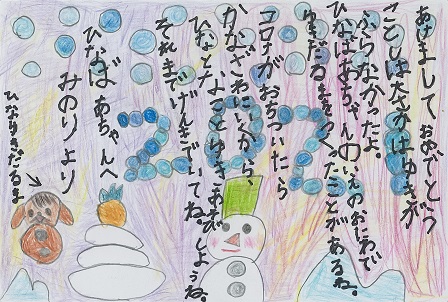 あけまして おめでとう
ことしは大さかはゆきが
ふらなかったよ。
ひなばあちゃんのいえのおにわで
ゆきだるまをつくったことがあるね。
コロナがおちついたら
かなざわにいくから、
ひなと ゆきあそびしようね。
それまでげんきでいてね。
ひなばあちゃんへ
みのりより
2021